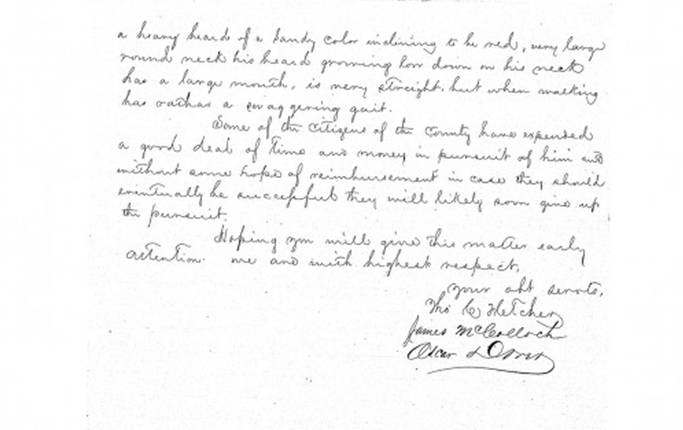 a heavy beard of a sandy color inclining to be red, very large
round neck his beard growing low down on his neck
has a large mouth, is very straight, but when walking
has rather a swaggering gait.
Some of the citizens of the county have expended
a good deal of time and money in pursuit of him and
without some hope of reimbursement in case they should
eventually be successful they will likely soon give up
the pursuit.
Hoping you will give this matter early
attention. we are with highest respect,
your obt servts,
Tho C Fletcher
James McCulloch
Oscar